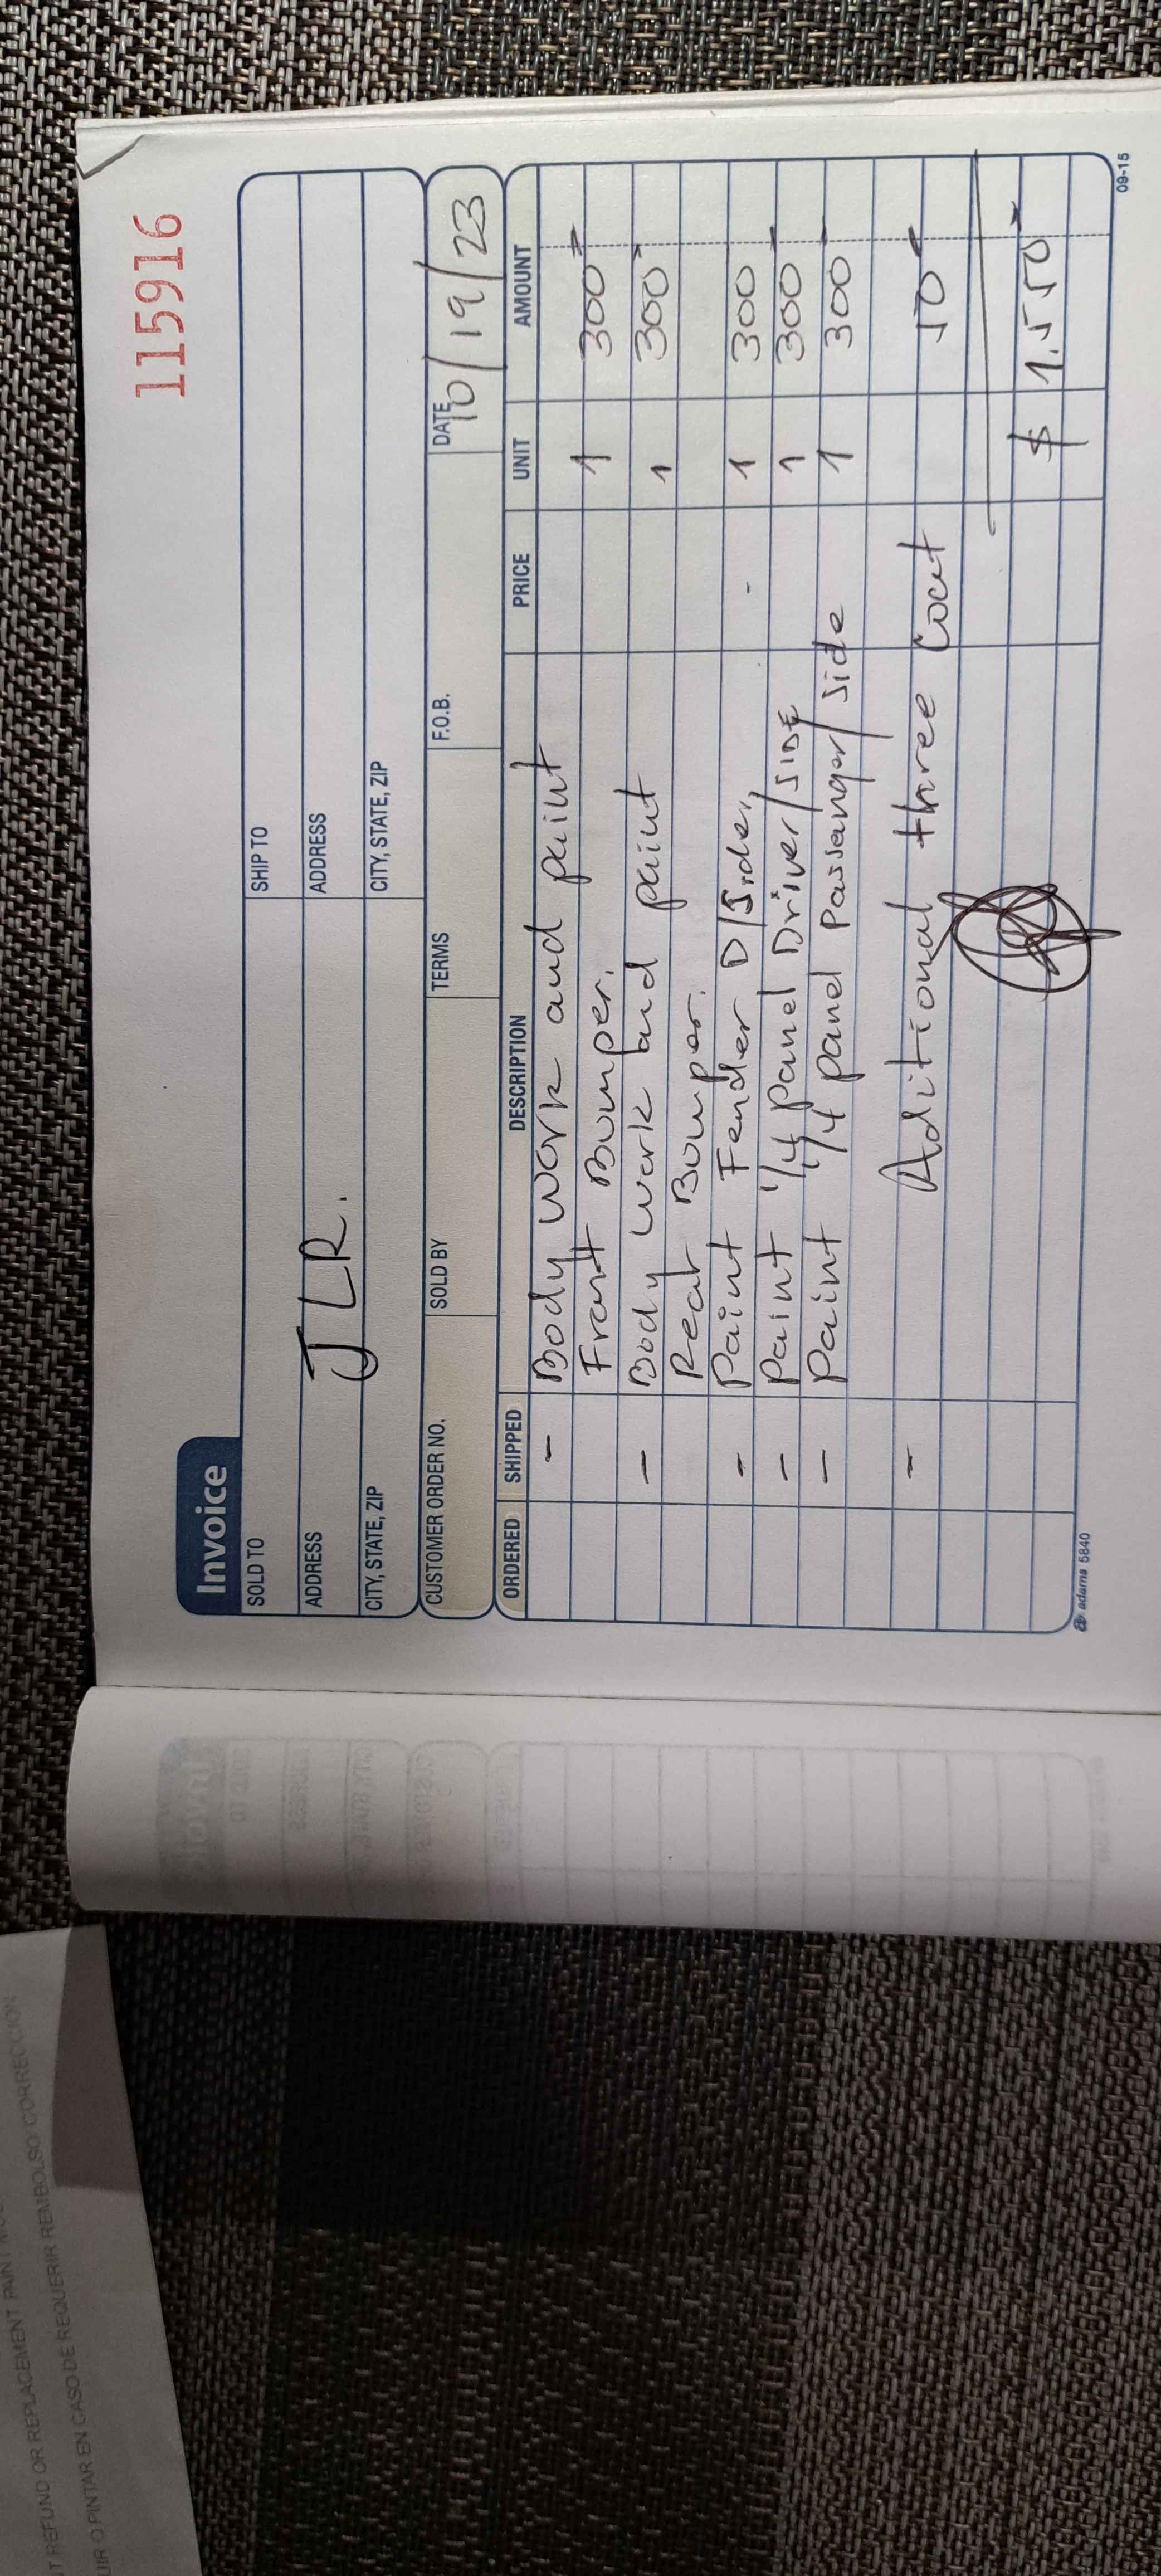 115916
Invoice
SOLD TO
SHIP TO
ADDRESS
JLR.
ADDRESS
CITY, STATE, ZIP
CITY, STATE, ZIP
CUSTOMER ORDER NO. SOLD BY TERMS F.O.B. DATE 10/19/23
ORDERED SHIPPED DESCRIPTION PRICE UNIT AMOUNT
- Body work and paint
Frant Bumper. 1 300
- Body work and paint 1 300
Rear Bumper.
- Paint Fender D/Side, 1 300
- Paint 1/4 panel Driver/SIDE 1 300
- Paint 1/4 panel Passanger/Side 1 300
- Aditional three Coat 50
$ 1.550
adams 5840
09-15
REFUND OR REPLACEMENT PAINT
O PINTAR EN CASO DE REQUERIR REMBOLSO/CORRECCION